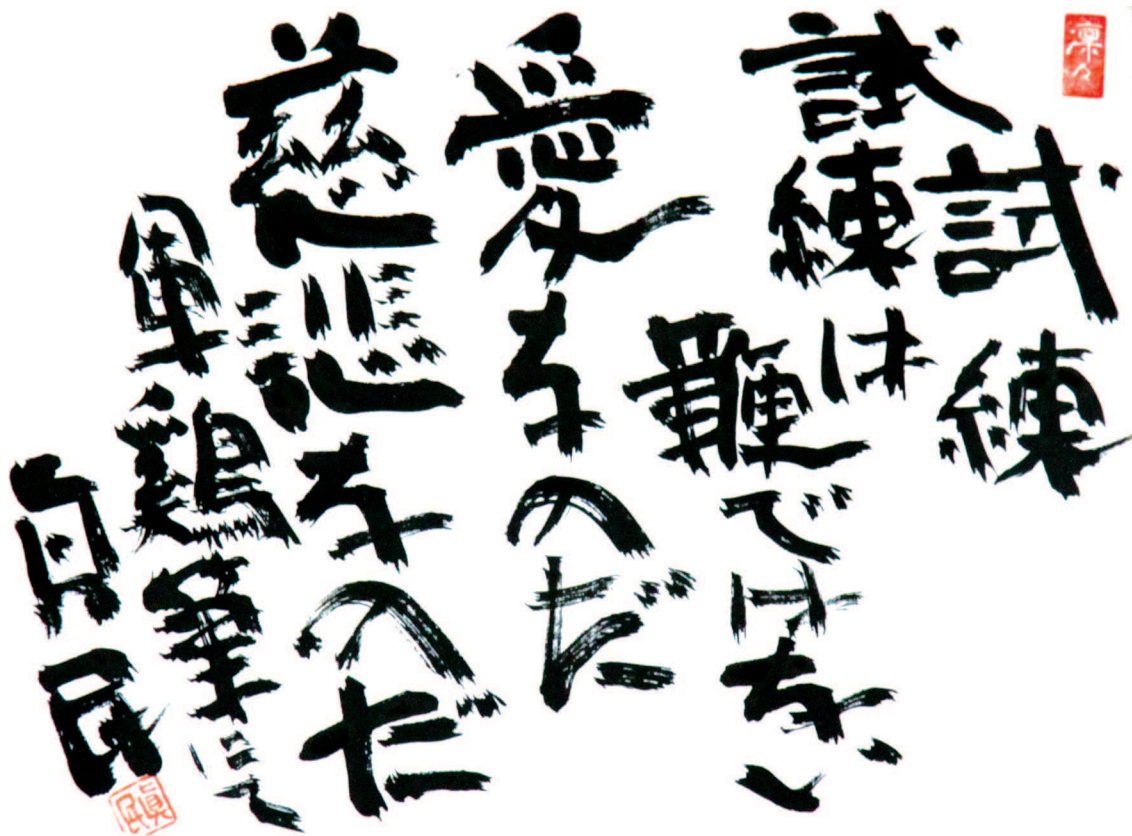 凛々
試練
試練は
難ではない
愛なのだ
慈悲なのだ
軍鶏筆にて
真民
眞民